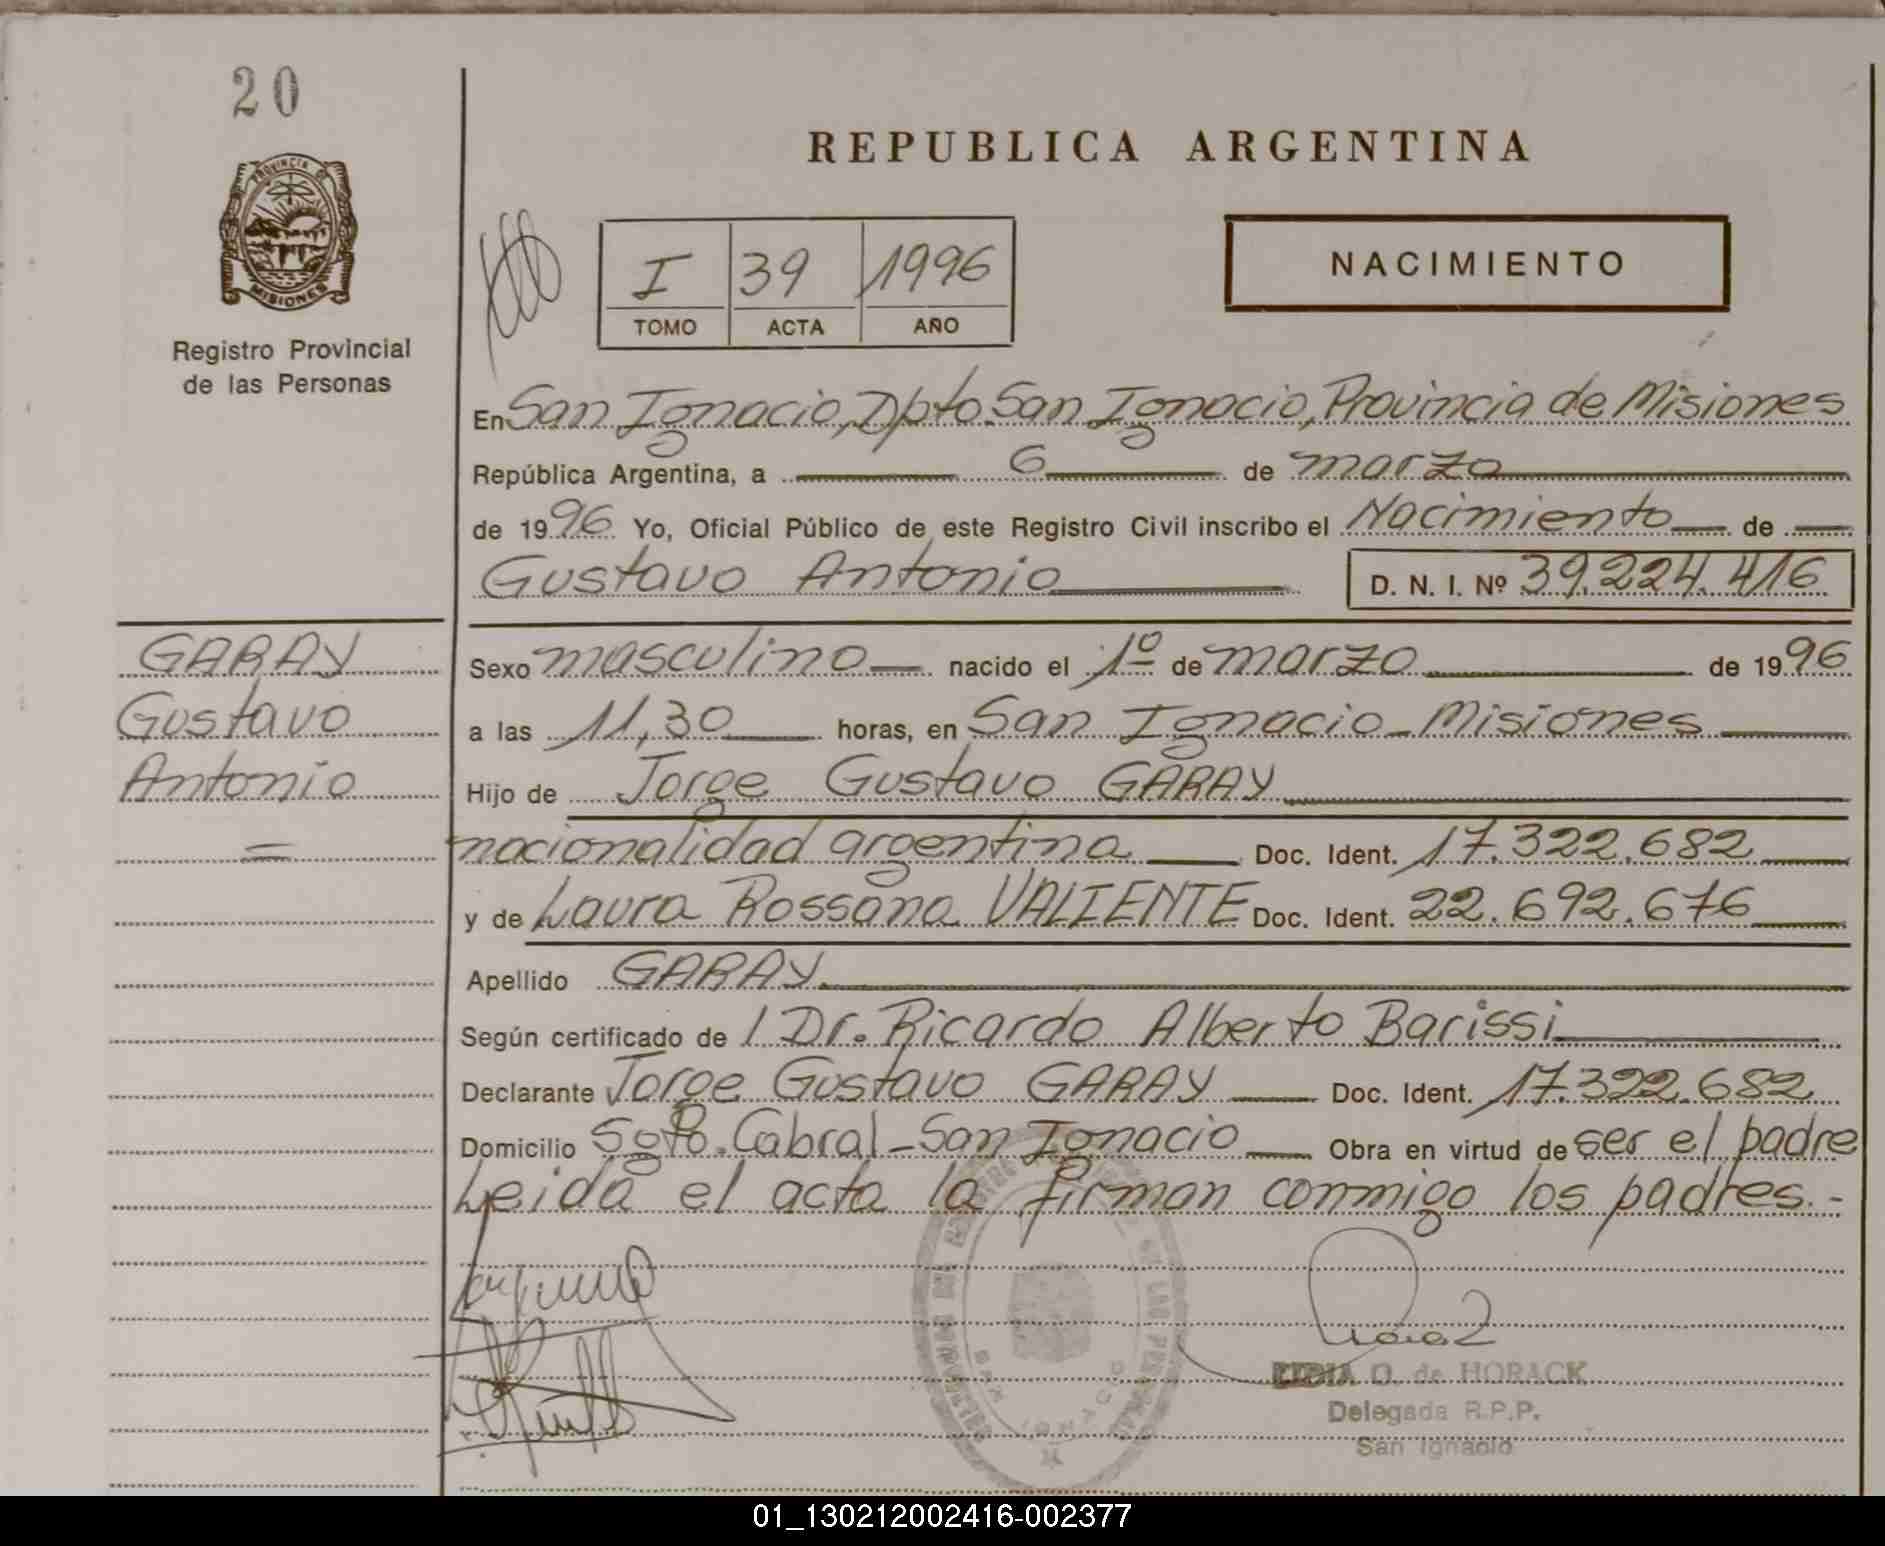 20
PROVINCIA DE
MISIONES
Registro Provincial
de las Personas
REPUBLICA ARGENTINA
I 39 1996
TOMO ACTA AÑO
NACIMIENTO
En San Ignacio, Dpto. San Ignacio, Provincia de Misiones
República Argentina, a 6 de marzo
de 1996 Yo, Oficial Público de este Registro Civil inscribo el Nacimiento de
Gustavo Antonio D. N. I. Nº 39.224.416
GARAY
Gustavo
Antonio
Sexo masculino nacido el 1º de marzo de 1996
a las 11,30 horas, en San Ignacio - Misiones
Hijo de Jorge Gustavo GARAY
nacionalidad argentina Doc. Ident. 17.322.682
y de Laura Rossana VALIENTE Doc. Ident. 22.692.676
Apellido GARAY
Según certificado de / Dr. Ricardo Alberto Barissi
Declarante Jorge Gustavo GARAY Doc. Ident. 17.322.682
Domicilio Sgto. Cabral - San Ignacio Obra en virtud de ser el padre
Leida el acta la firman conmigo los padres.-
SAN IGNACIO
LIDIA O. de HORACK
Delegada R.P.P.
San Ignacio
01_130212002416-002377